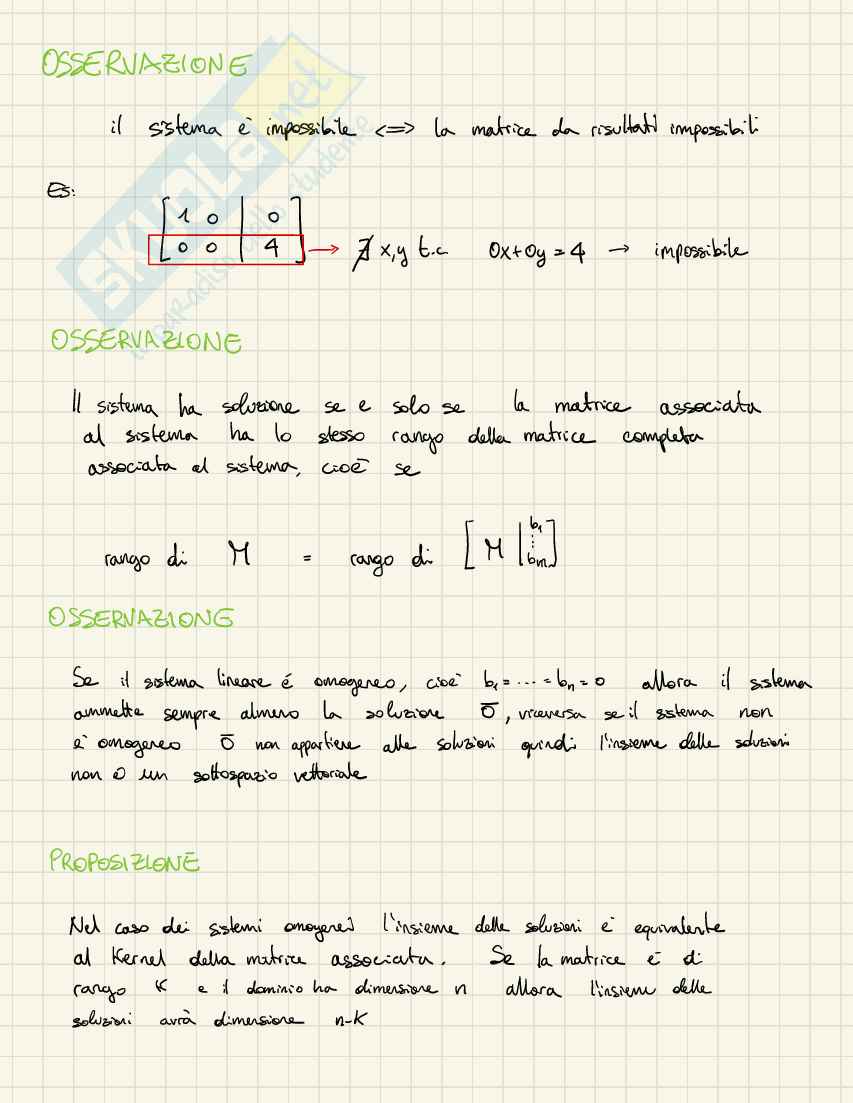 OSSERVAZIONE
il sistema è impossibile <=> la matrice da risultati impossibili
Es:
[ 1 0 | 0 ]
[ 0 0 | 4 ] → ∄ x,y t.c 0x+0y=4 → impossibile
OSSERVAZIONE
Il sistema ha soluzione se e solo se la matrice associata
al sistema ha lo stesso rango della matrice completa
associata al sistema, cioè se
rango di M = rango di [ M | b₁ ⋮ bₘ ]
OSSERVAZIONE
Se il sistema lineare é omogeneo, cioè b₁=...=bₙ=0 allora il sistema
ammette sempre almeno la soluzione 0̅, viceversa se il sistema non
è omogeneo 0̅ non appartiene alle soluzioni quindi l'insieme delle soluzioni
non è un sottospazio vettoriale
PROPOSIZIONE
Nel caso dei sistemi omogenei l'insieme delle soluzioni è equivalente
al Kernel della matrice associata. Se la matrice è di
rango K e il dominio ha dimensione n allora l'insieme delle
soluzioni avrà dimensione n-K
SKUOLA.net
il paradiso dello studente